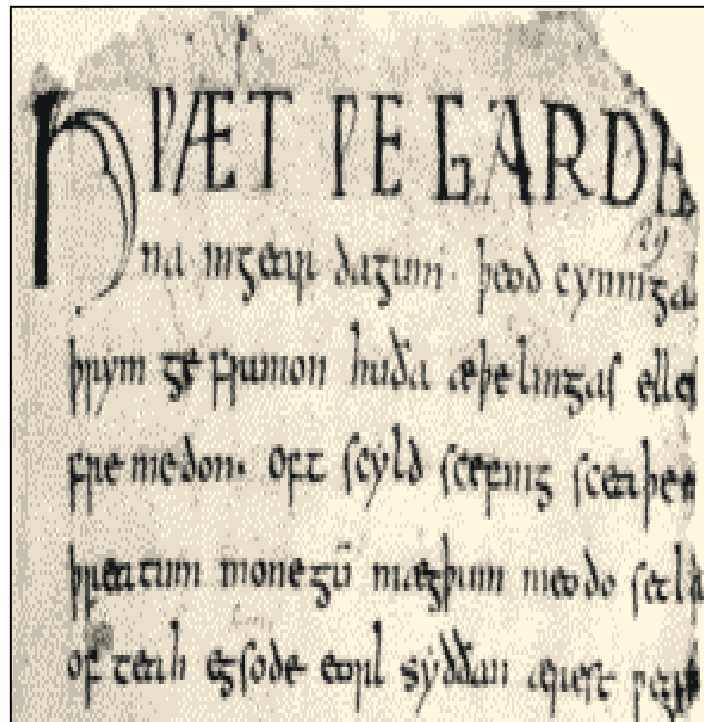 HǷÆT ǷE GARDE
na ingear dagum · þeod cyninga
þrym ge frunon huða æþelingas ellen
fremedon. oft scyld scefing sceaþen
þreatum monegū mægþum meodo setla
of teah egsode eorl syððan ærest ƿear